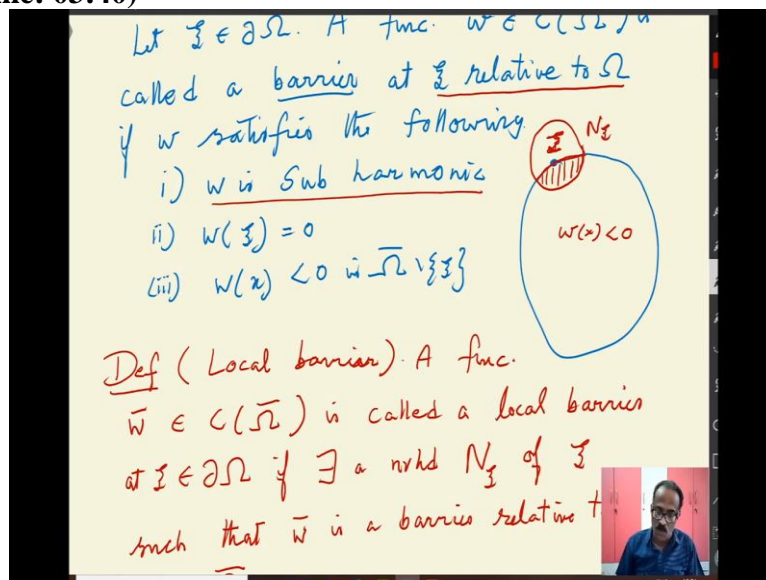 Let ξ ∈ ∂Ω. A func. w ∈ C(Ω̄) is
called a barrier at ξ relative to Ω
if w satisfies the following
i) w is Sub harmonic
ii) w(ξ) = 0
(iii) w(x) < 0 in Ω̄ \ {ξ}
ξ N_ξ
w(x) < 0
Def (Local barrier). A func.
w̄ ∈ C(Ω̄) is called a local barrier
at ξ ∈ ∂Ω if ∃ a nvhd N_ξ of ξ
such that w̄ is a barrier relative t